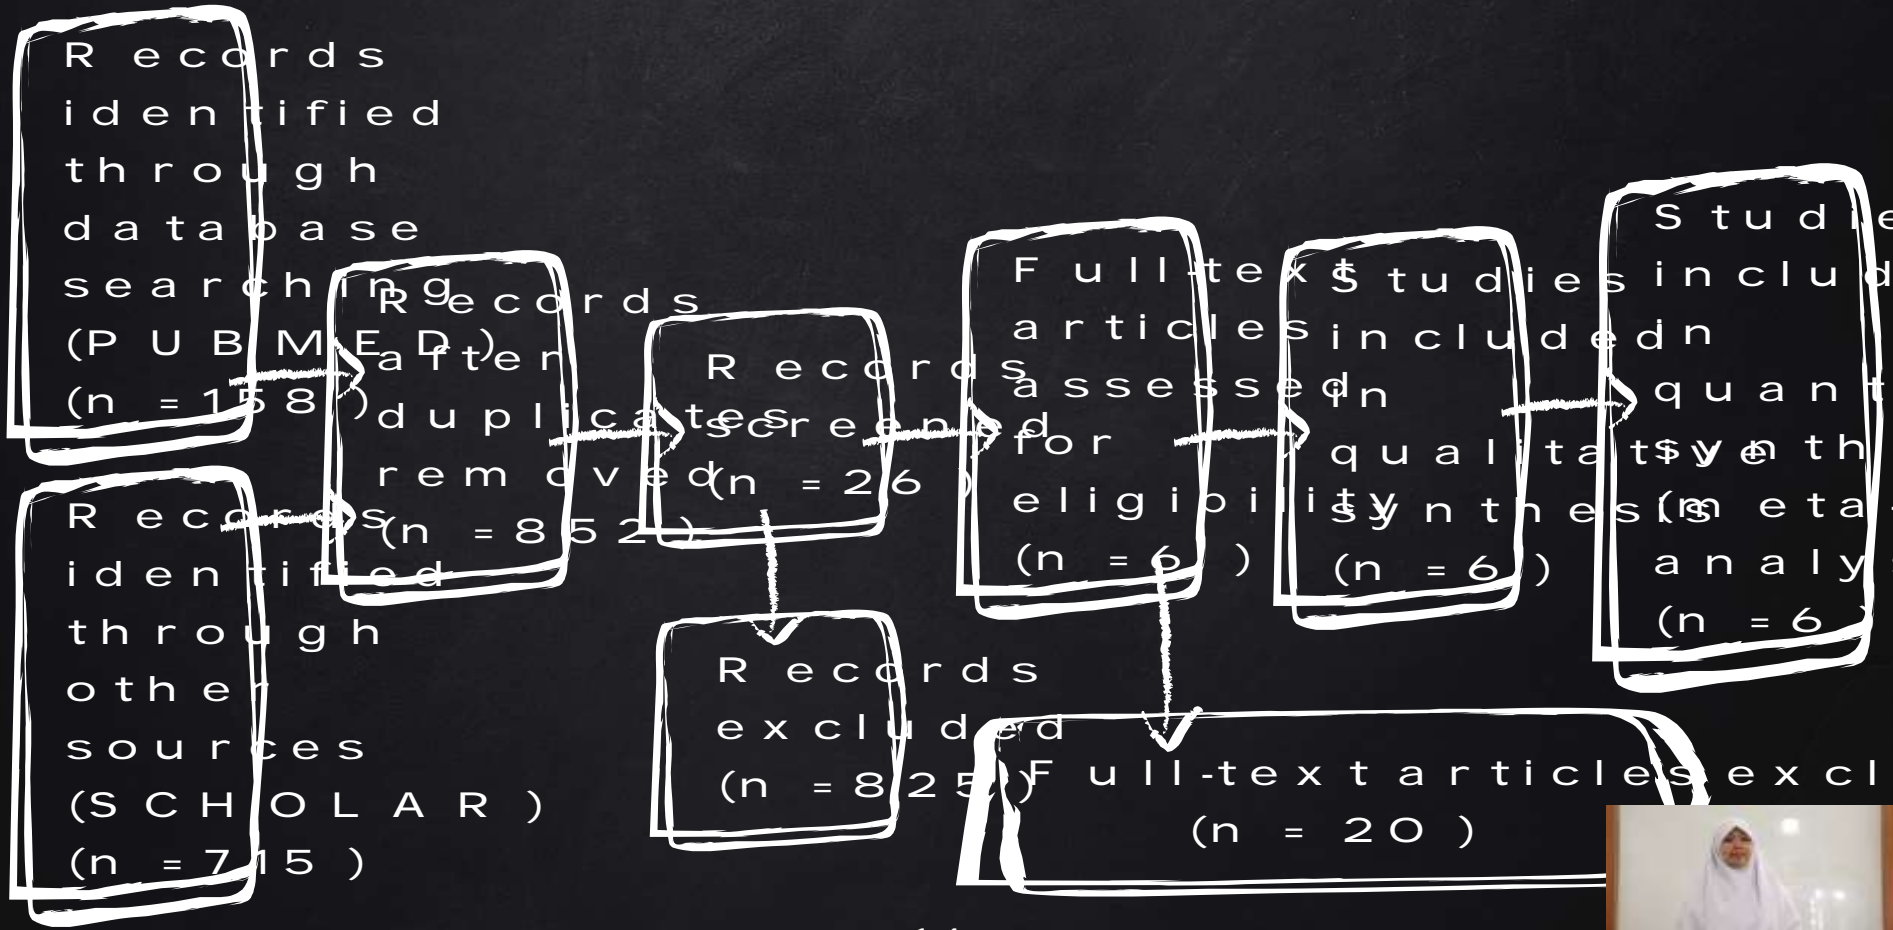 Records
identified
through
database
searching
(PUBMED)
(n = 158 )
Records
identified
through
other
sources
(SCHOLAR)
(n = 715 )
Records
after
duplicates
removed
(n = 852 )
Records
screened
(n = 26 )
Records
excluded
(n = 825 )
Full-text
articles
assessed
for
eligibility
(n = 6 )
Full-text articles excl
(n = 20 )
Studies
included
in
qualitative
synthesis
(n = 6 )
Studie
includ
in
quant
synth
(meta-
analy
(n = 6 )